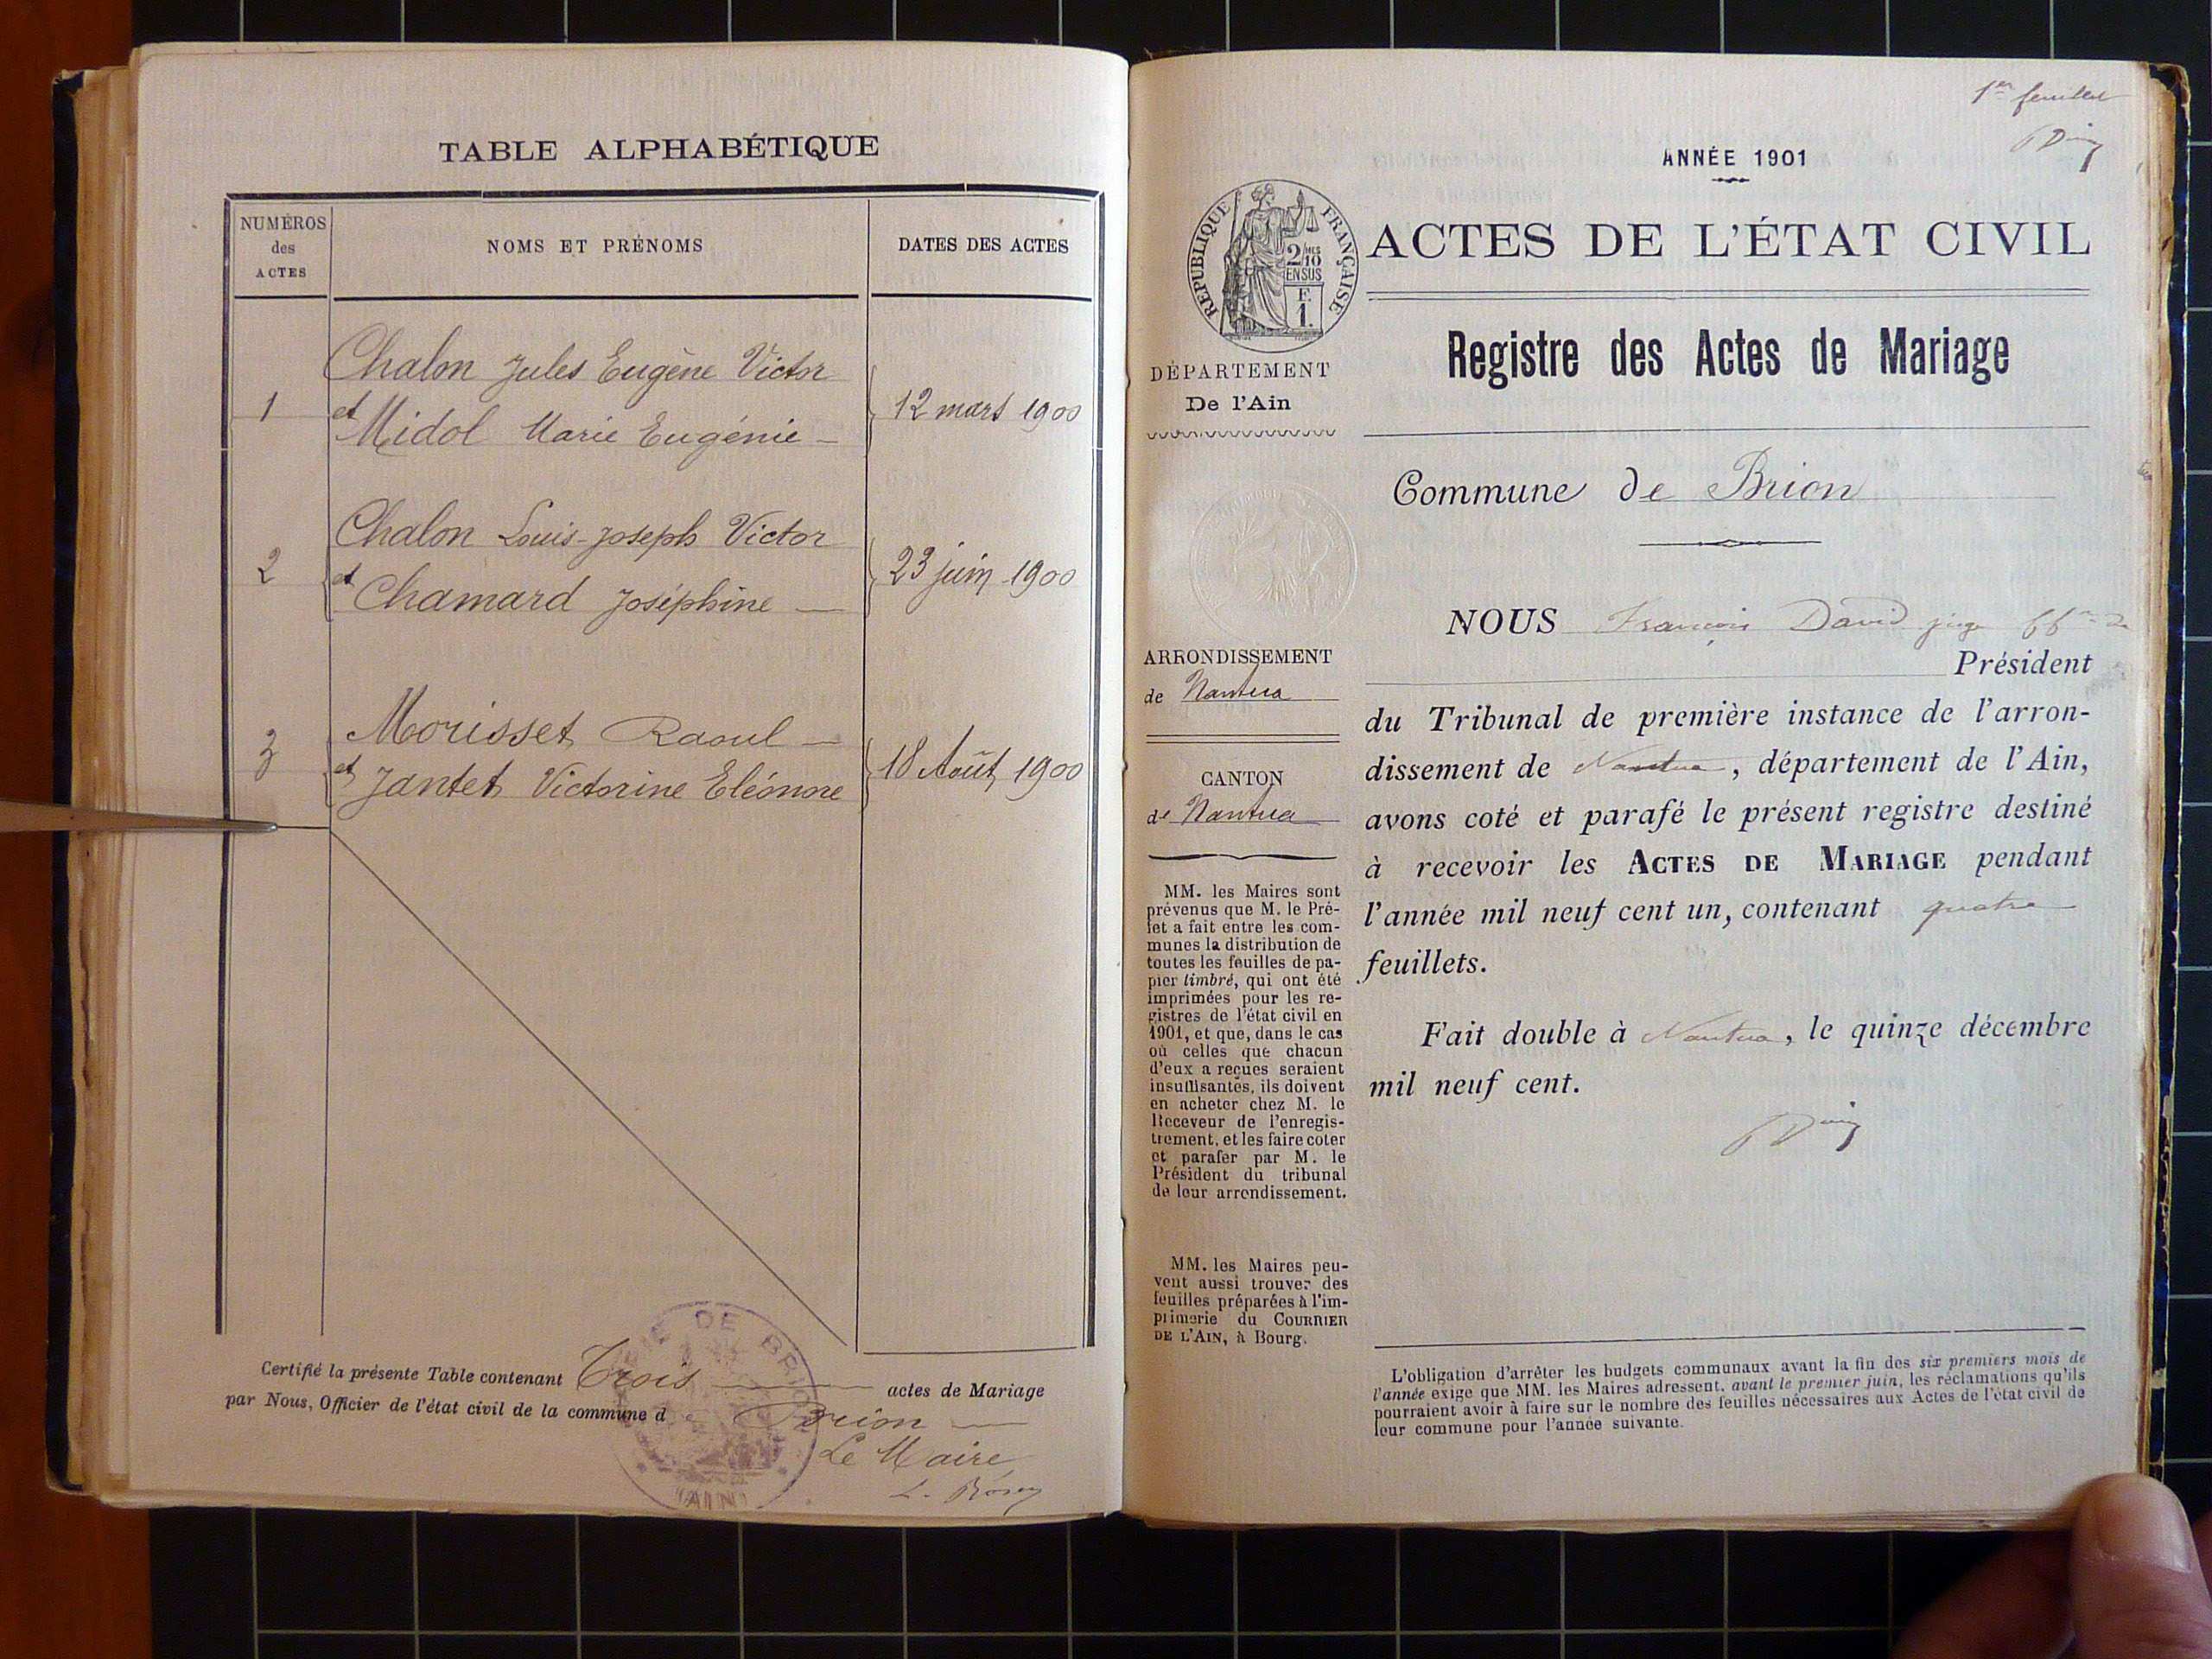 TABLE ALPHABÉTIQUE
NUMÉROS
des
ACTES
NOMS ET PRÉNOMS
DATES DES ACTES
Chalon Jules Eugène Victor
1 et 12 mars 1900
Midol Marie Eugénie
Chalon Louis-Joseph Victor
2 et 23 juin 1900
Chamard Joséphine
Morisset Raoul
3 et 18 Août 1900
Jantet Victorine Eléonore
Certifié la présente Table contenant Trois actes de Mariage
par Nous, Officier de l'état civil de la commune d Brion
Le Maire
DE BRION
(AIN)
1er feuillet
ANNÉE 1901
RÉPUBLIQUE FRANÇAISE
2/10
EN SUS
F.
1.
ACTES DE L'ÉTAT CIVIL
Registre des Actes de Mariage
DÉPARTEMENT
De l'Ain
Commune de Brion
NOUS François David juge
Président
ARRONDISSEMENT
de Nantua
CANTON
de Nantua
du Tribunal de première instance de l'arron-
dissement de Nantua, département de l'Ain,
avons coté et parafé le présent registre destiné
à recevoir les ACTES DE MARIAGE pendant
l'année mil neuf cent un, contenant quatre
feuillets.
Fait double à Nantua, le quinze décembre
mil neuf cent.
MM. les Maires sont
prévenus que M. le Pré-
fet a fait entre les com-
munes la distribution de
toutes les feuilles de pa-
pier timbré, qui ont été
imprimées pour les re-
gistres de l'état civil en
1901, et que, dans le cas
où celles que chacun
d'eux a reçues seraient
insuffisantes, ils doivent
en acheter chez M. le
Receveur de l'enregis-
trement, et les faire coter
et parafer par M. le
Président du tribunal
de leur arrondissement.
MM. les Maires peu-
vent aussi trouver des
feuilles préparées à l'im-
primerie du COURRIER
DE L'AIN, à Bourg.
L'obligation d'arrêter les budgets communaux avant la fin des six premiers mois de
l'année exige que MM. les Maires adressent, avant le premier juin, les réclamations qu'ils
pourraient avoir à faire sur le nombre des feuilles nécessaires aux Actes de l'état civil de
leur commune pour l'année suivante.